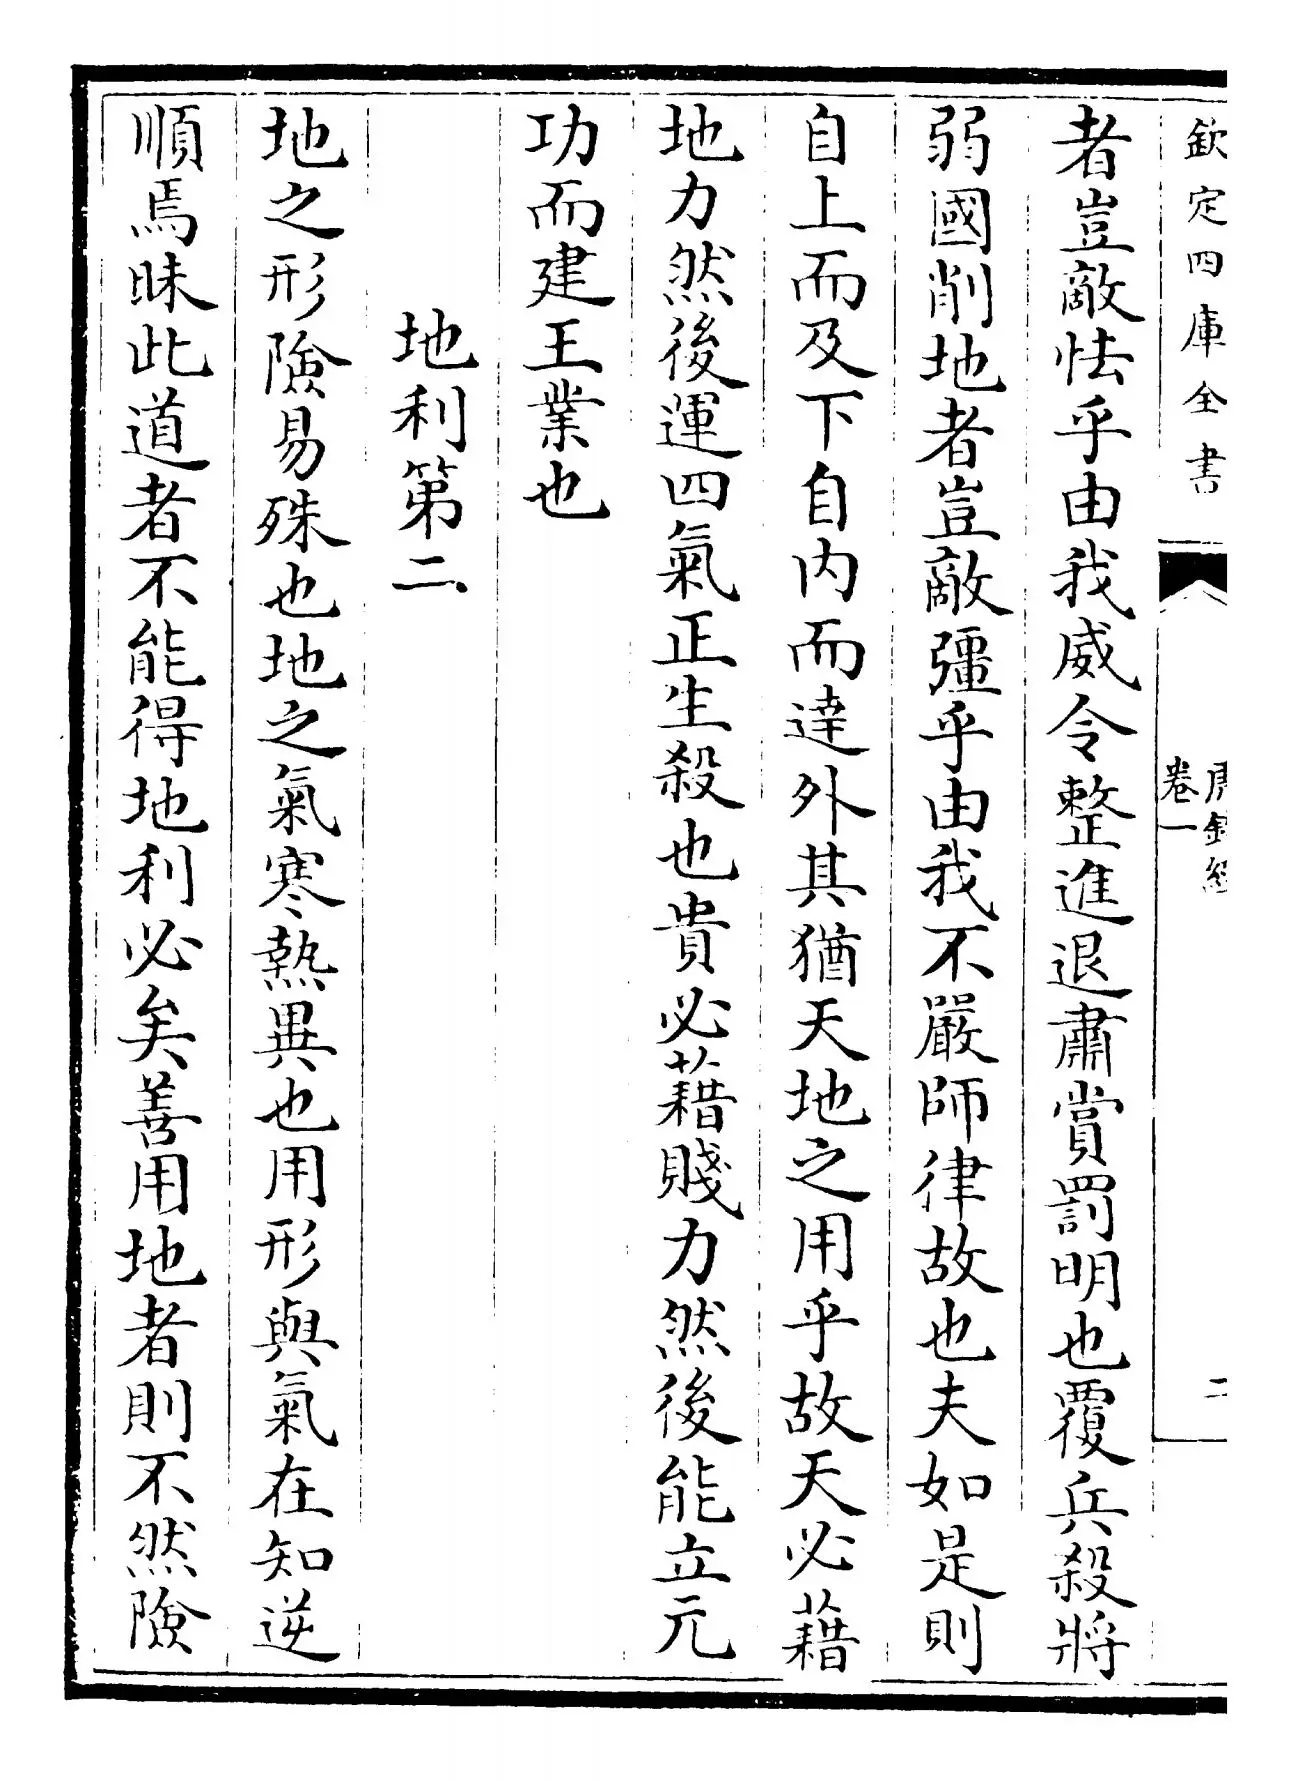 欽定四庫全書
卷一
二
者豈敵怯乎由我威令整進退肅賞罰明也覆兵殺將
弱國削地者豈敵彊乎由我不嚴師律故也夫如是則
自上而及下自内而達外其猶天地之用乎故天必藉
地力然後運四氣正生殺也貴必藉賤力然後能立元
功而建王業也
地利第二
地之形險易殊也地之氣寒熱異也用形與氣在知逆
順焉昧此道者不能得地利必矣善用地者則不然險